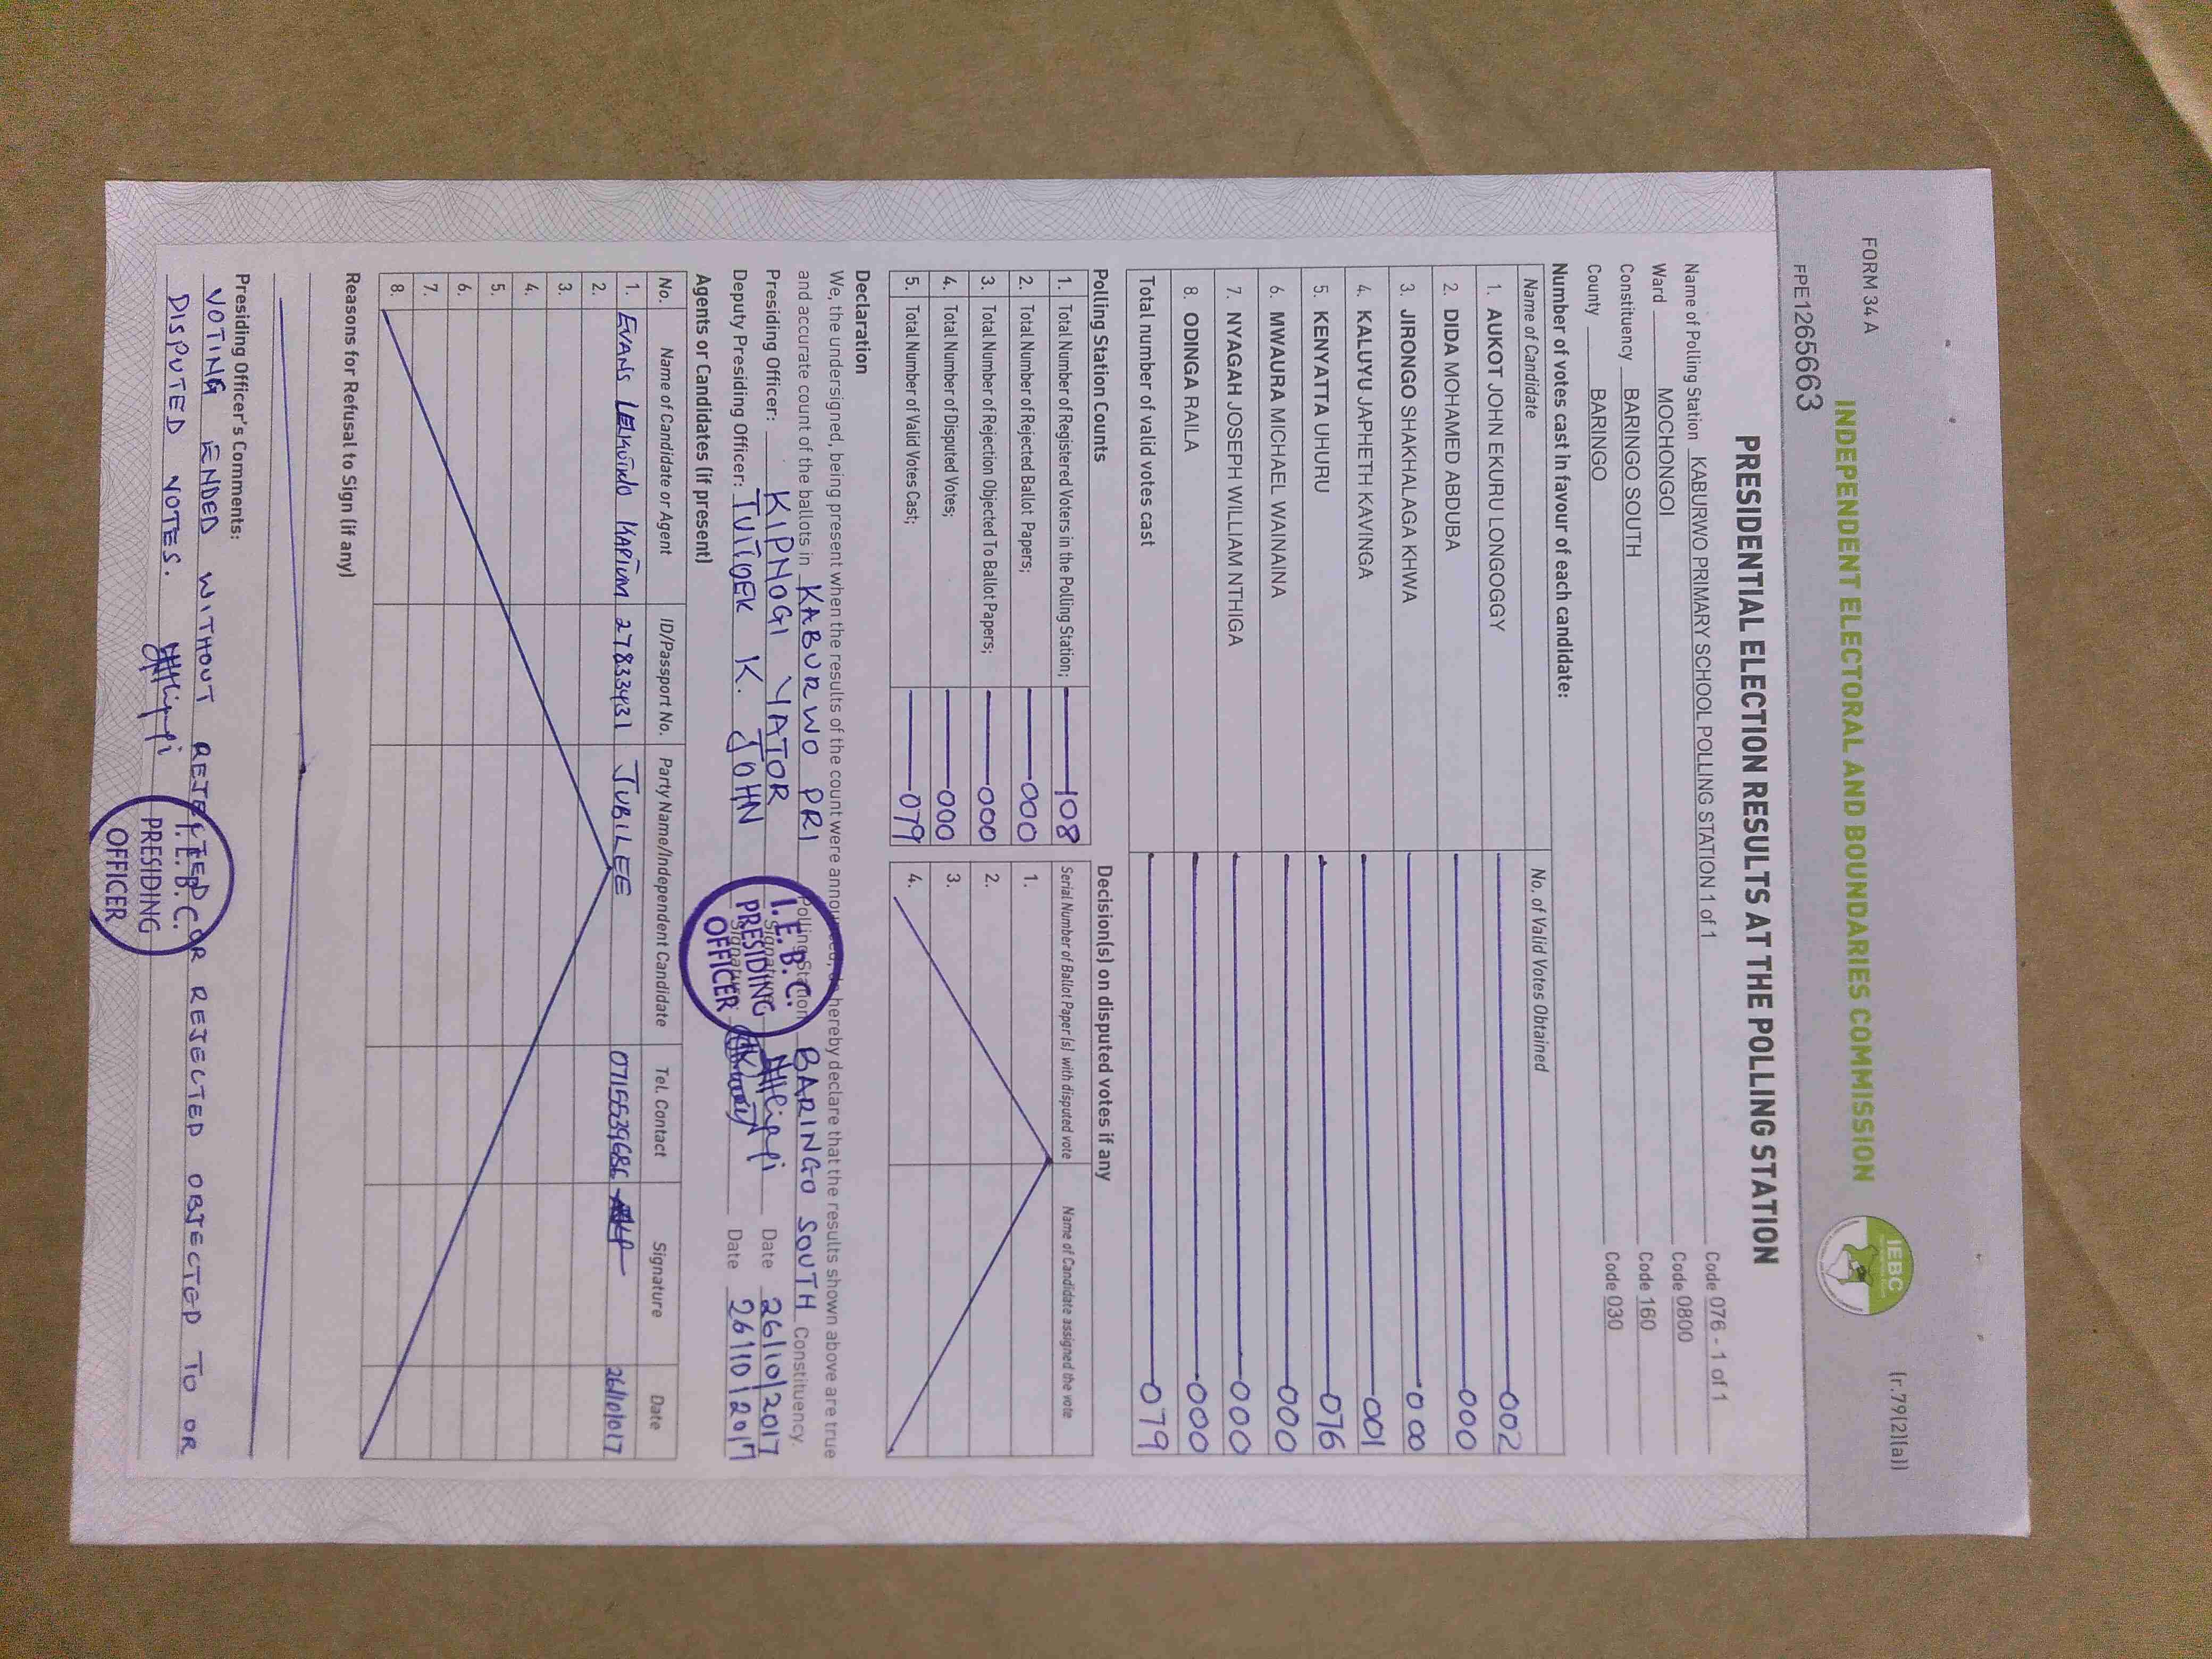 FORM 34 A
(r.79(2)(a))
INDEPENDENT ELECTORAL AND BOUNDARIES COMMISSION
IEBC
FPE1265663
PRESIDENTIAL ELECTION RESULTS AT THE POLLING STATION
Name of Polling Station KABURWO PRIMARY SCHOOL POLLING STATION 1 of 1 Code 076 - 1 of 1
Ward MOCHONGOI Code 0800
Constituency BARINGO SOUTH Code 160
County BARINGO Code 030
Number of votes cast in favour of each candidate:
Name of Candidate No. of Valid Votes Obtained
1. AUKOT JOHN EKURU LONGOGGY 002
2. DIDA MOHAMED ABDUBA 000
3. JIRONGO SHAKHALAGA KHWA 000
4. KALUYU JAPHETH KAVINGA 001
5. KENYATTA UHURU 076
6. MWAURA MICHAEL WAINAINA 000
7. NYAGAH JOSEPH WILLIAM NTHIGA 000
8. ODINGA RAILA 000
Total number of valid votes cast 079
Polling Station Counts Decision(s) on disputed votes if any
1. Total Number of Registered Voters in the Polling Station; 108
2. Total Number of Rejected Ballot Papers; 000
3. Total Number of Rejection Objected To Ballot Papers; 000
4. Total Number of Disputed Votes; 000
5. Total Number of Valid Votes Cast; 079
Serial Number of Ballot Paper(s) with disputed vote Name of Candidate assigned the vote
1.
2.
3.
4.
Declaration
We, the undersigned, being present when the results of the count were announced, do hereby declare that the results shown above are true
and accurate count of the ballots in KABURWO PRI Polling Station BARINGO SOUTH Constituency.
Presiding Officer: KIPNOGI YATOR Signature Date 26/10/2017
Deputy Presiding Officer: TUITOEK K. JOHN Signature: Date 26/10/2017
I.E.B.C.
PRESIDING
OFFICER
Agents or Candidates (if present)
No. Name of Candidate or Agent ID/Passport No. Party Name/Independent Candidate Tel. Contact Signature Date
1. EVANS 27833431 JUBILEE 0715539686 26/10/017
2.
3.
4.
5.
6.
7.
8.
Reasons for Refusal to Sign (if any)
Presiding Officer's Comments:
VOTING ENDED WITHOUT REJECTED OR REJECTED OBJECTED TO OR
DISPUTED VOTES.
I.E.B.C.
PRESIDING
OFFICER